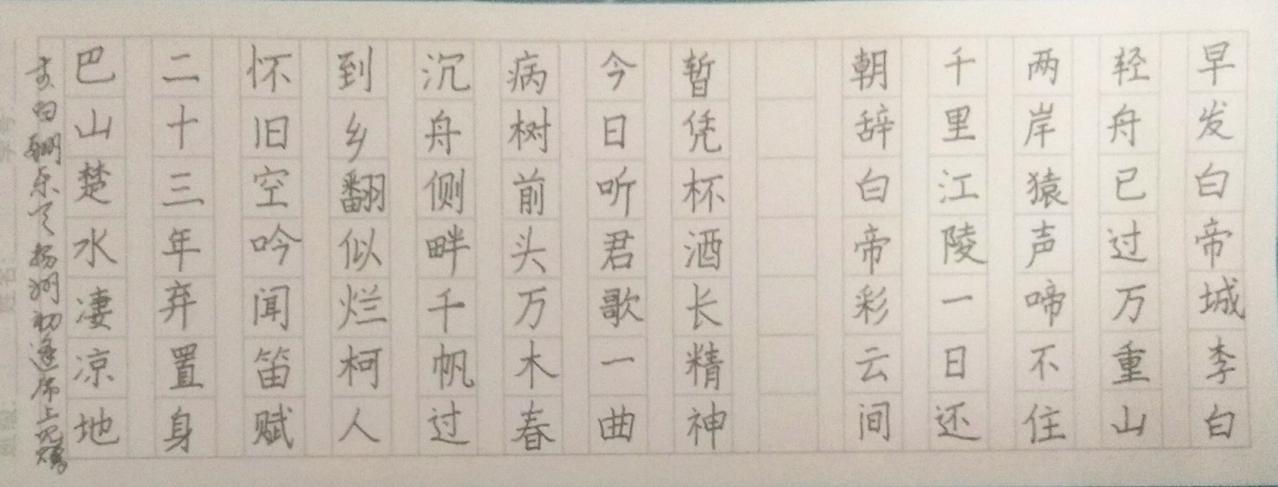 李白酬乐天扬州初逢席上见赠
巴山楚水凄凉地
二十三年弃置身
怀旧空吟闻笛赋
到乡翻似烂柯人
沉舟侧畔千帆过
病树前头万木春
今日听君歌一曲
暂凭杯酒长精神
朝辞白帝彩云间
千里江陵一日还
两岸猿声啼不住
轻舟已过万重山
早发白帝城李白